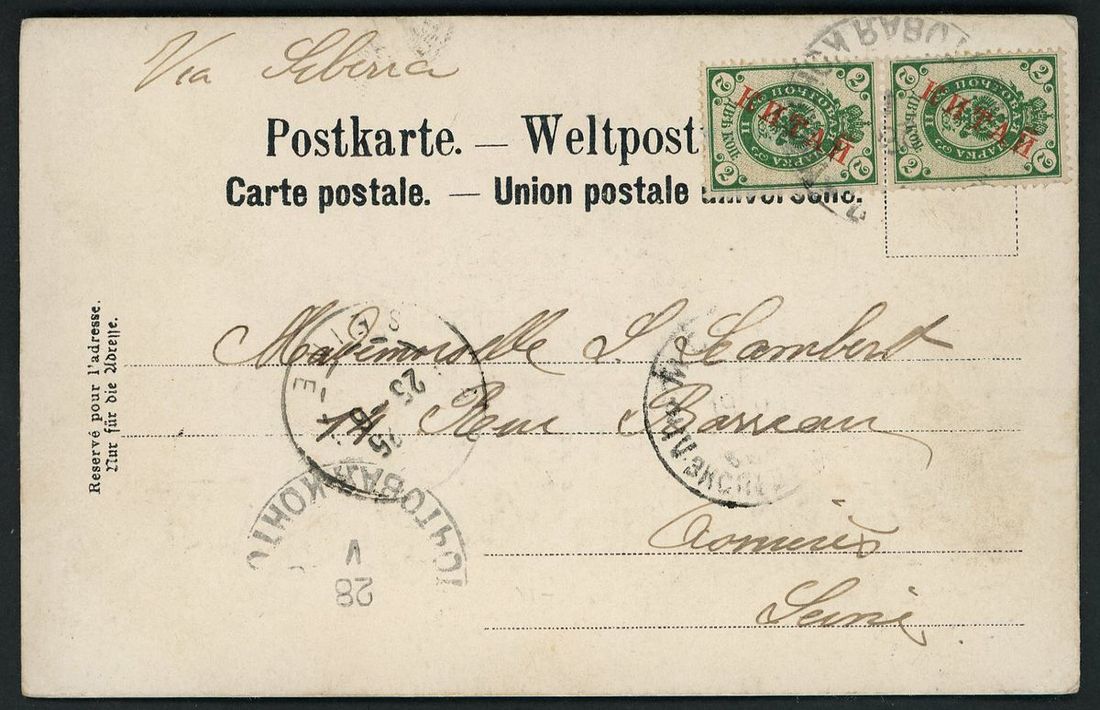 Via Siberia
Postkarte. — Weltpost
Carte postale. — Union postale universelle.
КИТАЙ
КИТАЙ
2 2 2 2
2 2 2 2
Reservé pour l'adresse.
Nur für die Adresse.
Mademoiselle S Lambert
14 Rue Barreau
Asnières
Seine
ПОЧТОВАЯ КОНТО
28
V